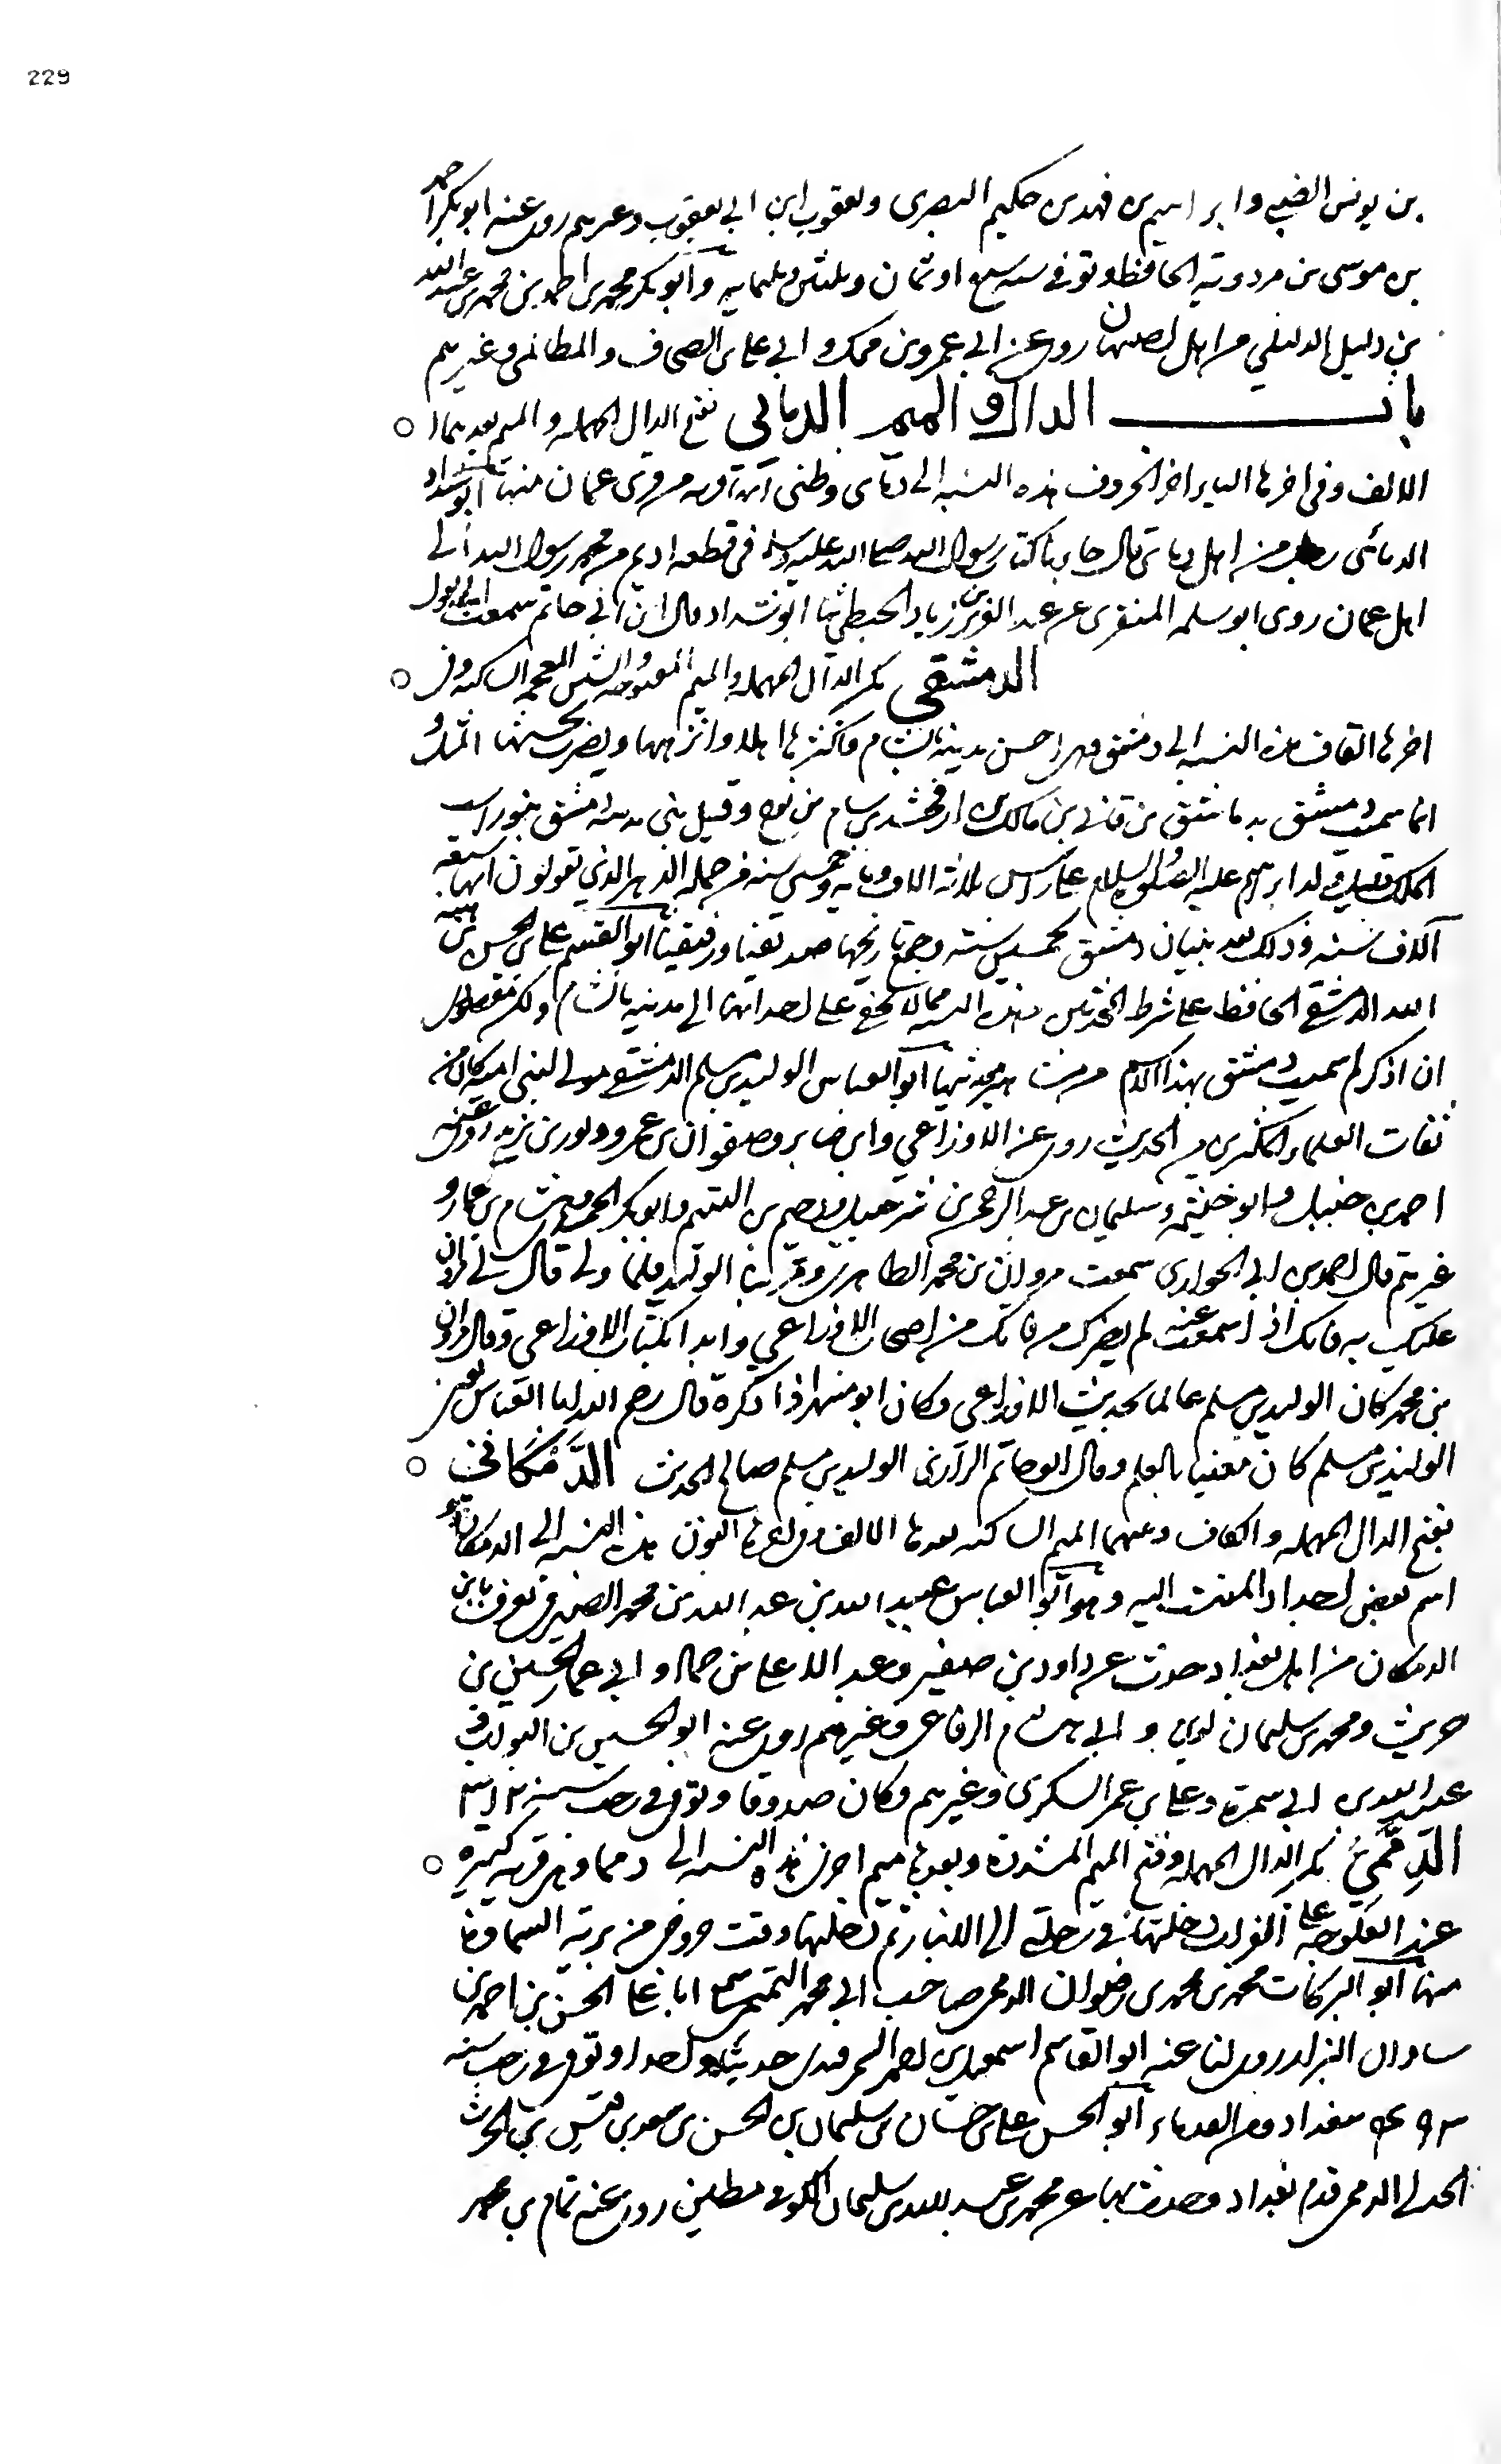 229
بن يونس الضبي وابراهيم بن فهد بن حكيم البصرى ويعقوب ابن ابي يعقوب وغيرهم روى عنه ابو بكر احمد
بن موسى بن مردويه الحافظ وتوفي سنه سبع او ثمان وثلثين وثلثمايه وابو بكر محمد بن احمد بن محمد بن عبد الله
بن دليل الدليلي من اهل اصبهان روى عن ابي عمرو بن ممك وابي على الصحاف و وغيرهم
باب الدال والميم الدمايي بفتح الدال المهمله والميم بعدهما
الالف وفي اخرها الياء اخر الحروف هذه النسبه الى دماى وظنى انها قريه من قرى عمان منها ابو شداد
الدمائى رجل من اهل دماى قال جاءنا كتاب رسول الله صلى الله عليه وسلم فى قطعه اديم من محمد رسول الله الى
اهل عمان روى ابو سلمه المنقرى عن عبد العزيز بن زياد الحبطي ثنا ابو شداد قال ابن ابي حاتم سمعت ابي يقول
الدمشقي بكسر الدال المهمله والميم المفتوحه والشين المعجمه الساكنه وفى
اخرها القاف هذه النسبه الى دمشق وهى احسن مدينة بالشام واكثرها اهلا وانزهها ويضرب بحسنها المثل و
انما سميت دمشق بدماشق بن قاني بن مالك بن ارفخشد بن سام بن نوح وقيل بنى مدينه دمشق بنوراسب
الملك وقيل ولد ابرهيم عليه الصلوه والسلام على راس ثلاثة الاف ومايه وخمسين سنه من جمله الدهر الذي يقولون انها سبعه
آلاف سنه وذلك بعد بنيان دمشق بخمس سنه وجمع تاريخها صديقنا ورفيقنا ابو القسم على بن الحسن بن هبه
الله الدمشقي الحافظ على شرط المحدثين وهذه النسبه مما لا يخفى على احد انها الى مدينه بالشام ولكن مقصودى
ان اذكر لم سميت دمشق بهذا الاسم ومحدثيها ابو العباس الوليد بن مسلم الدمشقى مولى لبنى اميه كان من
ثقات العلماء المكثرين من الحديث روى عن الاوزاعي وابن جابر وصفوان بن عمرو وثور بن يزيد روى عنه
احمد بن حنبل وابو خيثمه وسليمان بن عبد الرحمن بن شرحبيل و وابو بكر الحميدى وهشام بن عمار و
غيرهم قال احمد بن ابى الحوارى سمعت مروان بن محمد الطاطرى الوليد فلما ولى قال لي مروان
عليك به فانك اذا سمعت منه لم يضرك من فاتك من اصحاب الاوزاعي وابدا بكتاب الاوزاعى وقال مروان
بن محمد كان الوليد بن مسلم عالما بحديث الاوزاعى وكان ابو مسهر اذا ذكره قال رحم الله ابا العباس يعنى
الوليد بن مسلم كان معنيا بالعلم وقال ابو حاتم الرازى الوليد بن مسلم صالح الحديث الدَّمْكَاني
بفتح الدال المهمله والكاف وبينهما الميم الساكنه بعدها الالف وفي اخرها النون هذه النسبه الى الدمكان وهو
اسم لبعض اجداد المنتسب اليه وهو ابو العباس عبيد الله بن عبد الله بن محمد الصيرفي يعرف بابن
الدمكان من اهل بغداد حدث عن داود بن صغير وعبد الاعلى بن حماد وابي عمار الحسين بن
حريث ومحمد بن سليمان لوين وابي هشام الرفاعى وغيرهم روى عنه ابو الحسين بن البواب و
عبد الله بن ابي سمرة وعلى بن عمر السكرى وغيرهم وكان صدوقا وتوفى في رجب سنه ٣١٣
الدِّمَّمِيُّ بكسر الدال المهمله وفتح الميم المشددة وبعدها ميم اخرى هذه النسبه الى دمما وهى قريه كبيره
عند الفلوجه على الفرات دخلتها فى رحلتى الى الانبار ثم دخلتها وقت خروجى من برية السماوة
منها ابو البركات محمد بن محمد بن رضوان الدممى صاحب ابي محمد التميمى سمع ابا على الحسن بن احمد بن
شاذان البزاز روى لنا عنه ابو القاسم اسمعيل بن احمد السمرقندى حديثا واحدا وتوفى في رجب سنه
٤٩٣ ببغداد ومن القدماء ابو الحسن على بن حسان بن سليمان بن الحسن بن سعد بن قيس بن الحرث
الجدلى الدممى قدم بغداد وحدث بها عن محمد بن عبد الله بن سليمان الكوفى مطين روى عنه تمام بن محمد